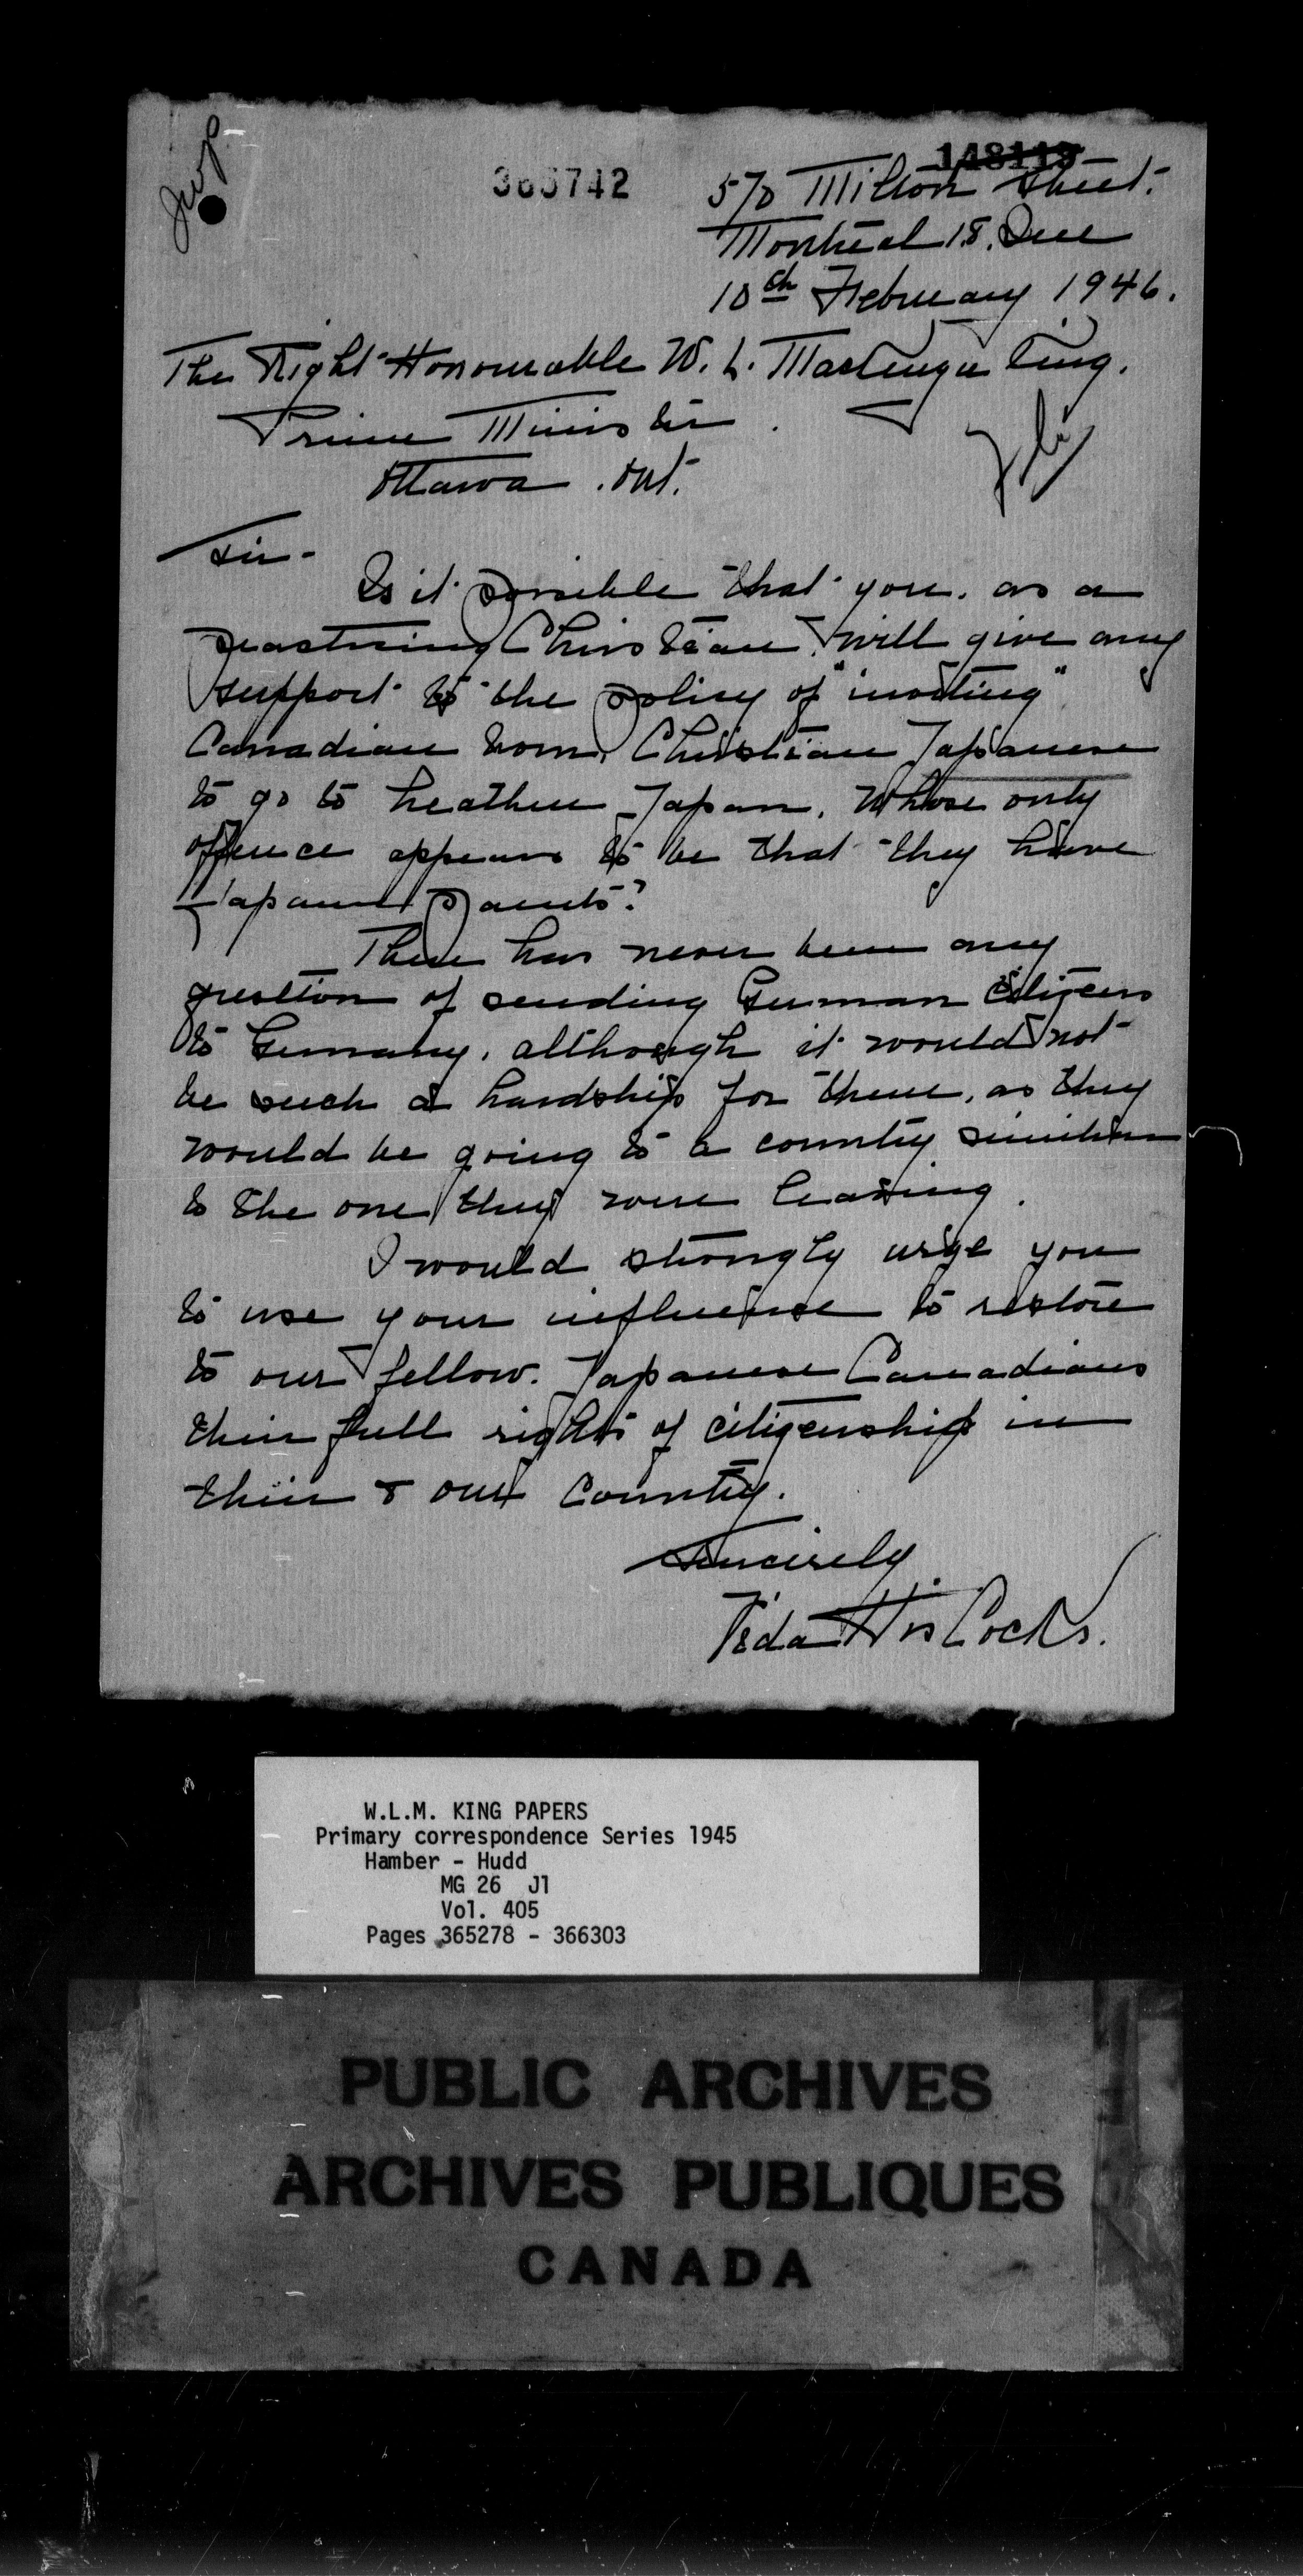 365742
148119
570 Milton Street.
Montreal 18, Que
10th February 1946.
The Right Honourable W. L. Mackenzie King.
Prime Minister.
Ottawa. Ont.
Sir-
Is it possible that you, as a
practising Christian, will give any
support to the policy of "inviting"
Canadian born, Christian Japanese
to go to heathen Japan, whose only
offence appears to be that they have
Japanese parents?
There has never been any
question of sending German citizens
to Germany, although it would not
be such a hardship for them, as they
would be going to a country similar
to the one they were leaving.
I would strongly urge you
to use your influence to restore
to our fellow. Japanese Canadians
their full rights of citizenship in
their & our country.
Sincerely,
Vida HisCocks.
W.L.M. KING PAPERS
Primary correspondence Series 1945
Hamber - Hudd
MG 26 J1
Vol. 405
Pages 365278 - 366303
PUBLIC ARCHIVES
ARCHIVES PUBLIQUES
CANADA